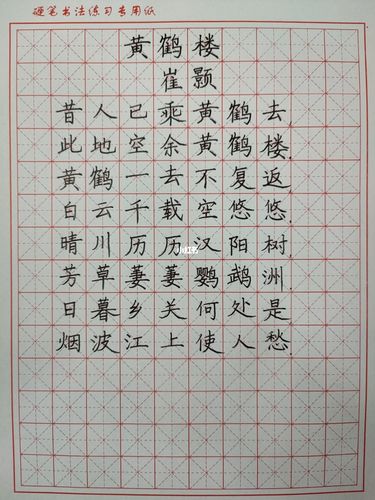 硬笔书法练习专用纸
黄鹤楼
崔颢
昔人已乘黄鹤去
此地空余黄鹤楼.
黄鹤一去不复返
白云千载空悠悠.
晴川历历汉阳树
芳草萋萋鹦鹉洲.
日暮乡关何处是
烟波江上使人愁.